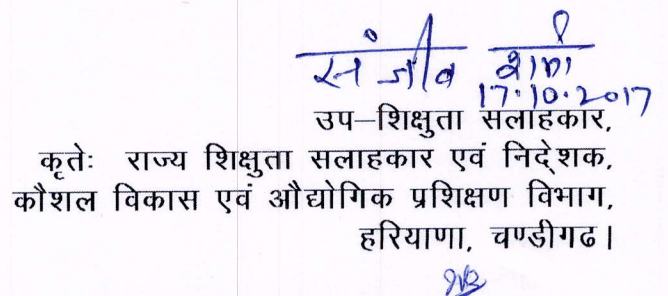 संजीव शर्मा
17.10.2017
उप–शिक्षुता सलाहकार,
कृतेः राज्य शिक्षुता सलाहकार एवं निदेशक,
कौशल विकास एवं औद्योगिक प्रशिक्षण विभाग,
हरियाणा, चण्डीगढ।